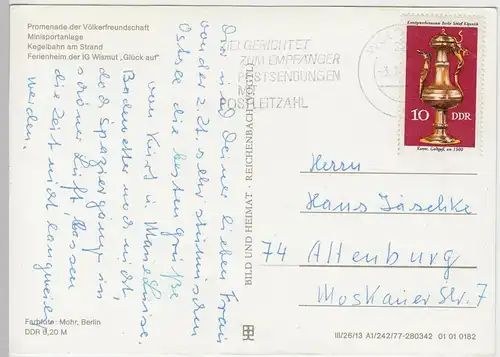 Promenade der Völkerfreundschaft
Minisportanlage
Kegelbahn am Strand
Ferienheim der IG Wismut „Glück auf"
Dir und Deiner lieben Frau
von der z. Zt. stürmischen
Ostsee die besten Grüße
von Kurt u. Marieluise.
Badewetter noch nicht,
das Spazierengehen in
schöner Luft, lassen
die Zeit nicht langweilig
werden.
Farbfoto: Mohr, Berlin
DDR 0,20 M
BILD UND HEIMAT · REICHENBACH (VOGTL)
ZIELGERICHTET
ZUM EMPFÄNGER
POSTSENDUNGEN
MIT
POSTLEITZAHL
Kunstsammlungen Berlin Schloß Köpenick
10 DDR
Herrn
Hans Jaschke
74 Altenburg
Moskauer Str. 7
III/26/13 A1/242/77-280342 01 01 0182